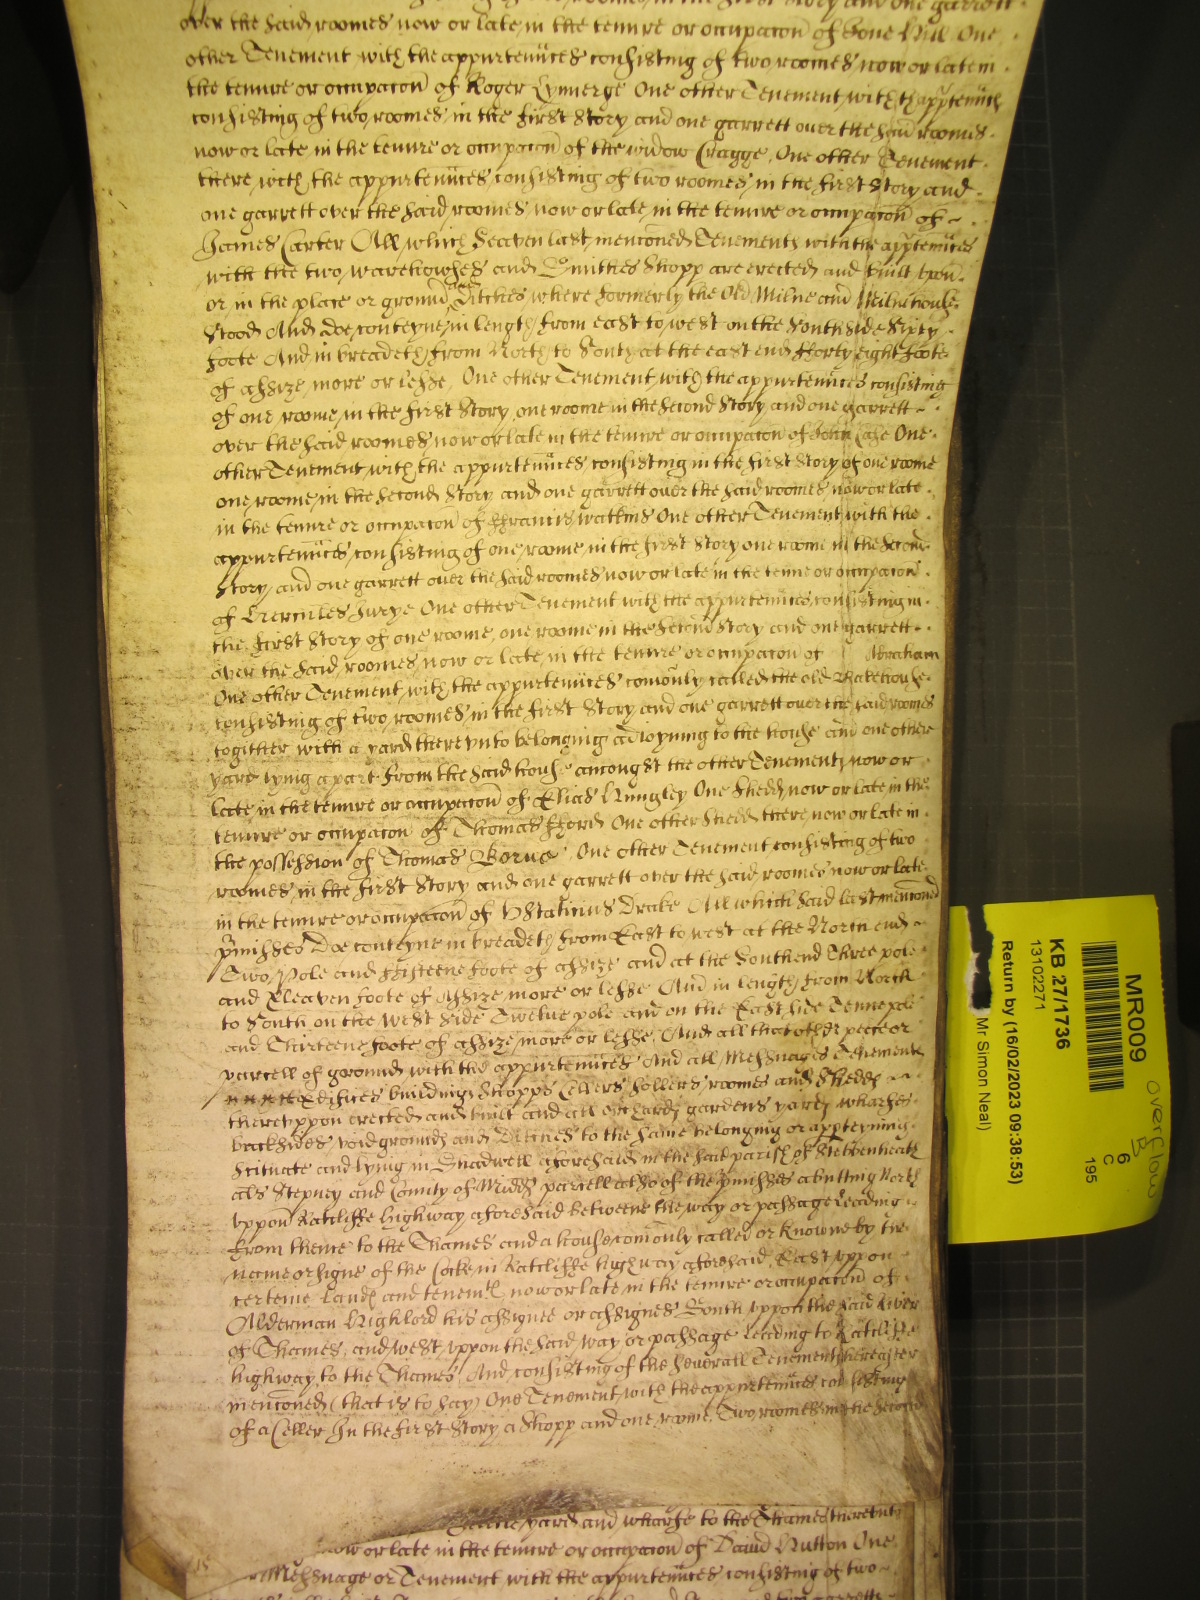 roomes, in the first Story and one garrett
over the said roomes now or late, in the tenure or occupacon of One
other Tenement with the appurtennces consisting of two roomes now or late in
the tenure or occupacon of Roger One other Tenement, with thapptennces
consisting of two roomes, in the first Story and one garrett over the said roomes
now or late, in the tenure or occupacon of the widow Cragge, One other Tenement
there, with the appurtennces, consisting of two roomes, in the first Story and
one garrett over the said roomes, now or late, in the tenure or occupacon of
James Carter All, which Seaven last, mencioned Tenements with the apptennces
with the two, warehowses and Smithes Shopp are erected and built upon
or in the place or ground Ditches where formerly the Old Milne and Milnehouse
Stood And doe, conteyne, in length, from east to west on the South side Sixty
foote And in breadeth, from North, to South at the east end fforty eight foote
of assize, more or lesse, One other Tenement, with the appurtennces consisting
of one, roome, in the first Story, one roome in the Second Story and one garrett
over the said roomes now or late in the tenure or occupacon of John One
other Tenement, with the appurtennces consisting in the first Story of one roome
one, roome, in the Second Story and one garrett over the said roomes now or late
in the tenure or occupacon of ffrancis watkins One other Tenement with the
appurtennces, consisting of one, roome, in the first Story one roome in the Second
Story, and one garrett over the said roomes now or late in the tenure or occupacon
of Hercules One other Tenement with the appurtennces, consisting in
the first Story of one roome, one roome in the Second Story and one garrett
over the said, roomes, now or late, in the tenure or occupacon of Abraham
One other Tenement, with the appurtennces comonly called the old
consisting of two, roomes, in the first Story and one garrett over the said roomes
together with a yard thereunto belonging adioyning to the house and one other
yard lying apart from the said house amongst the other Tenements, now or
late, in the tenure or occupacon of Elias One shedd, now or late in the
tenure or occupacon of Thomas fford One other shedd there, now or late in
the possession of Thomas One other Tenement consisting of two
roomes, in the first Story and one garrett over the said roomes now or late
in the tenure or occupacon of Drake All which said last mencioned
pmisses Doe conteyne in breadeth from East to west at the North end
Two, Pole and ffifteene foote of assize and at the South end Three pole
and Eleaven foote of Assize more or lesse And in length, from North
to South on the West side Twelve pole and on the East side Tenne pole
and Thirteene foote of assize, more or lesse, And all that other peece or
parcell of ground with the appurtennces And all Messuages Tenements
Edifices buildings Shopps Cellers Sollers roomes and Shedds
thereuppon erected and built and all orchards gardens yards wharfes
backsides, void grounds and Ditches to the same belonging or apperteyning
Scituate and lying in Shadwell aforesaid in the said parish of Stebbenheath
als Stepney and County of Midds parcell also of the pmisses abutting North
uppon Ratcliffe highway aforesaid betweene the way or passage leading
from thence to the Thames and a house, comonly called or knowne by the
name or signe of the Cocke in Ratcliffe highway aforesaid, East uppon
certeine Lands and tenemts now or late, in the tenure or occupacon of
Alderman Highlord his assignee or assignes South uppon the said River
of Thames, and west, uppon the said way or passage leading to Ratcliffe
highway, to the Thames, And, consisting of the severall Tenements hereafter
mencioned, (that is to say) One Tenement, with the appurtennces consisting
of a Celler In the first Story a Shopp and one, roome, Two roomes in the Second
yard and wharfe to the Thames thereunto
now or late in the tenure or occupacon of David Hutton One
Messuage or Tenement with the appurtennces consisting of two
MR009
6
C
195
overflow
B
KB 27/1736
13102271
Return by (16/02/2023 09:38:53)
Mr. Simon Neal)